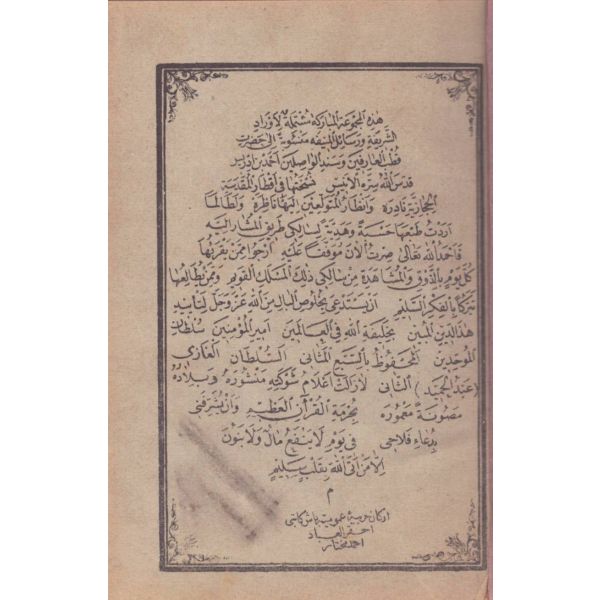 هذه المجموعة المباركة مشتملة لأوراد
الشريفة ورسائل المنيفه منسوبة الى حضرت
قطب العارفين وسند الواصلين احمد بن ادريس
قدس الله سره الانيس نسختها فى اقطار المقدسة
الحجازية نادرة وانظار المتولعين اليها ناظرة وطالما
اردت طبعها حسبة وهدية لسالكى طريق المشار اليه
فاحمد الله تعالى صرت الان موفقا عليه ارجوا ممن يقربها
كل يوم بالذوق والمشاهدة من سالكى ذلك المسلك القويم وممن يطالعها
تبركا بالفكر السليم ان يستدعى بخلوص البال من الله عز وجل لتاييد
هذا الدين المبين بخليفة الله فى العالمين امير المؤمنين سلطان
الموحدين المحفوظ بالسبع المثانى السلطان الغازى
(عبد الحميد) الثانى لازالت اعلام شوكته منشوره وبلاده
مصونة معموره بحرمة القرآن العظيم وان يشرفنى
بدعاء فلاحى فى يوم لا ينفع مال ولا بنون
الا من اتى الله بقلب سليم
م
اركان حربية عموميه باش كاتبى
احقر العباد
احمد مختار